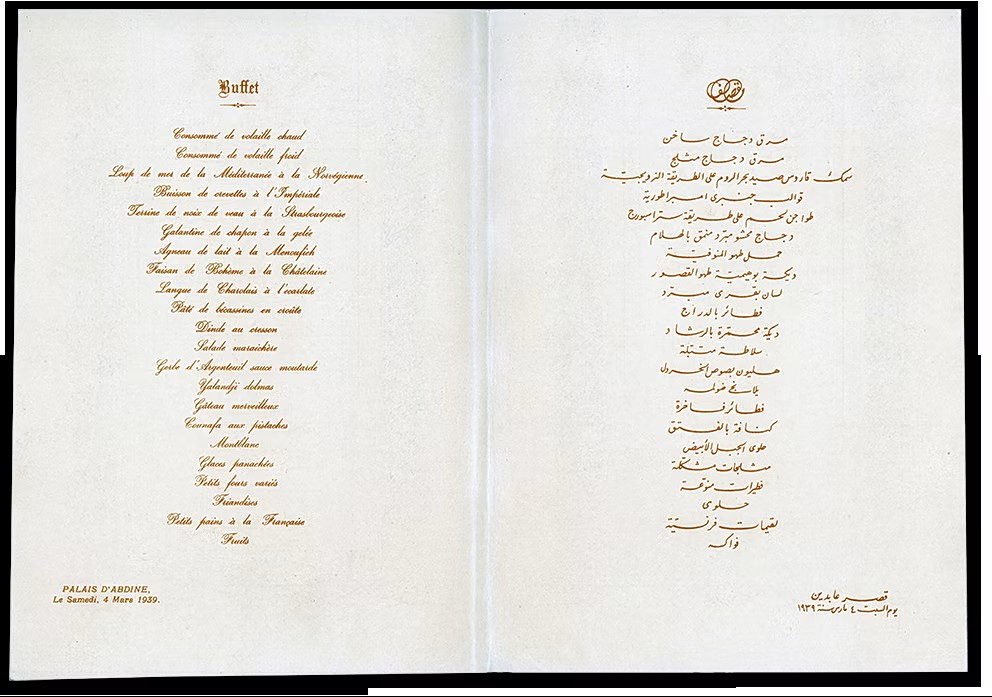 Buffet
Consommé de volaille chaud
Consommé de volaille froid
Loup de mer de la Méditerranée à la Norvégienne
Buisson de crevettes à l'Impériale
Terrine de noix de veau à la Strasbourgeoise
Galantine de chapon à la gelée
Agneau de lait à la Menoufieh
Faisan de Bohème à la Châtelaine
Langue de Charolais à l'écarlate
Pâté de bécassines en croûte
Dinde au cresson
Salade maraichère
Gerbe d'Argenteuil sauce moutarde
Yalandji dolmas
Gâteau merveilleux
Counafa aux pistaches
Montblanc
Glaces panachées
Petits fours variés
Friandises
Petits pains à la Française
Fruits
PALAIS D'ABDINE,
Le Samedi, 4 Mars 1939.
مرق دجاج ساخن
مرق دجاج مثلج
سمك قاروس صيد بحر الروم على الطريقة النرويجية
قوالب جنبرى امبراطورية
طواجن لحم على طريقة ستراسبورج
دجاج محشو مبرد منمق بالهلام
حمل طهو المنوفية
ديكة بوهيمية طهو القصور
لسان بقرى مبرد
فطائر بالدراج
ديكة محمرة بالرشاد
سلاطة متبلة
هليون بصوص الخردل
يلانجى ضولمه
فطائر فاخرة
كنافة بالفستق
حلوى الجبل الأبيض
مثلجات مشكلة
فطيرات منوعة
حلوى
لقيمات فرنسية
فواكه
قصر عابدين
يوم السبت ٤ مارس سنة ١٩٣٩